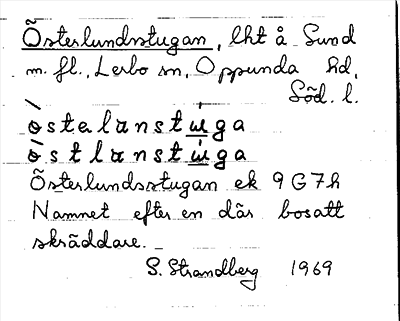 Österlundsstugan, lht å Sund
m. fl., Lerbo sn, Oppunda hd,
Söd. l.
òstelanstɯ́ga
òstlanstɯ́ga
Österlundsstugan ek 9G7h
Namnet efter en där bosatt
skräddare.
S. Strandberg 1969